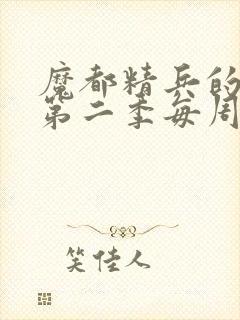 魔都精兵的
第二季每周
笑佳人